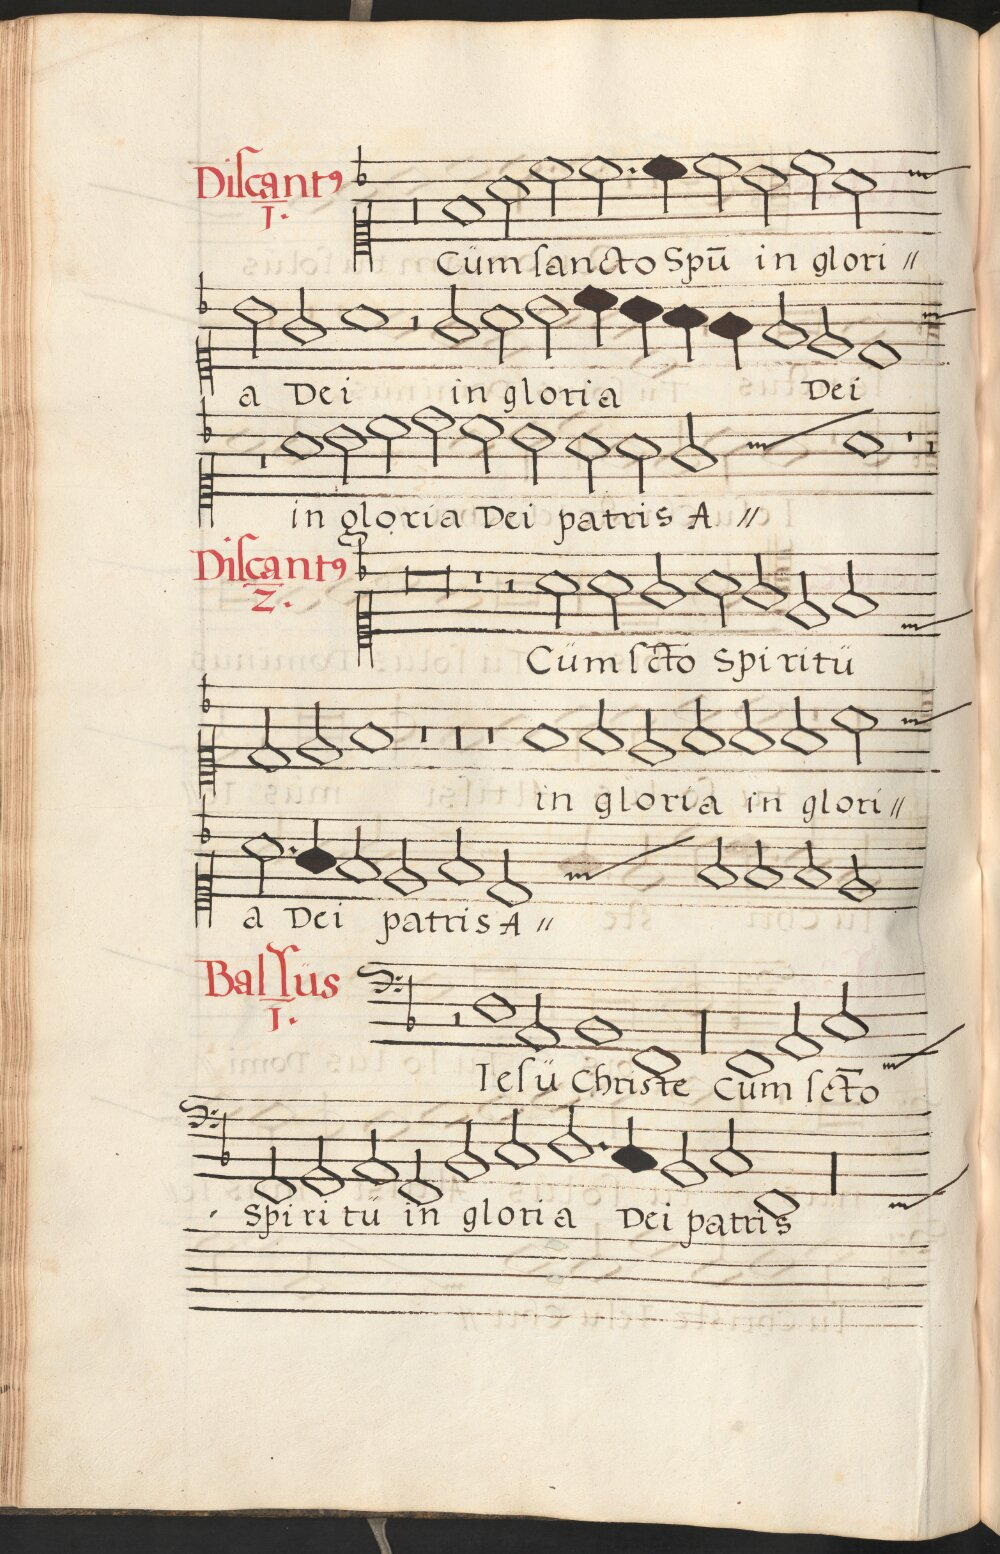 Discantꝰ
1.
Cüm sancto Spū in glori //
a Dei in gloria Dei
in gloria Dei patris A //
Discantꝰ
2.
Cüm sc̄to Spiritü
in gloria in glori //
a Dei patris A //
Bassüs
1.
Iesü Christe Cüm sc̄to
Spiritü in gloria Dei patris